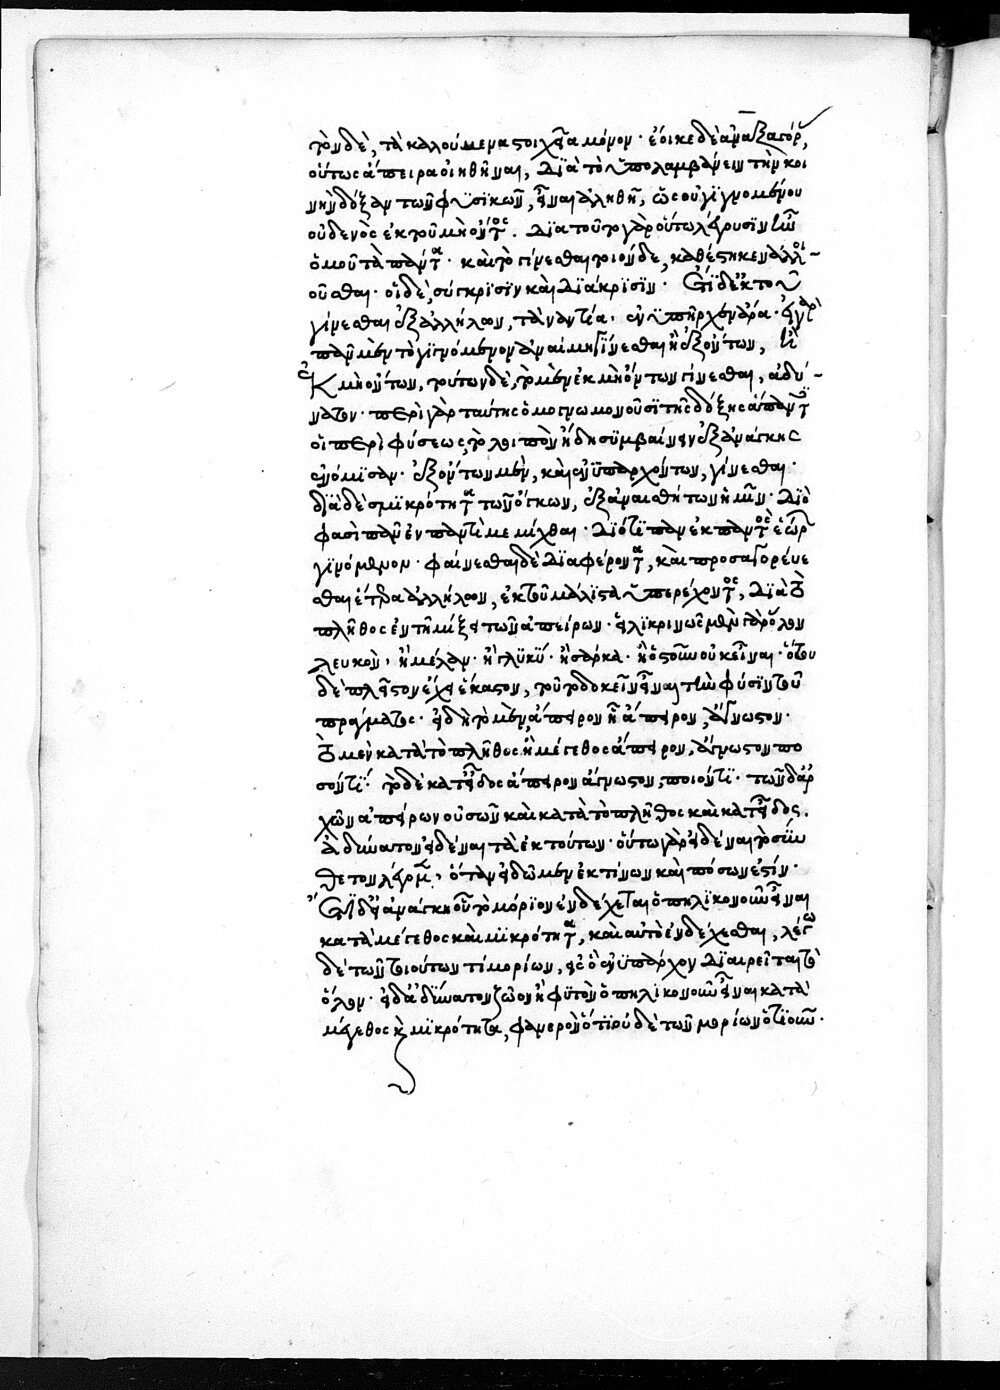 τὸν δὲ, τὰ καλούμενα στοιχεῖα μόνον· ἔοικε δὲ ἀναξαγόρας,
οὕτως ἄπειρα οἰηθῆναι, διὰ τὸ ὑπολαμβάνειν τὴν κοι
νὴν δόξαν τῶν φυσϊκῶν, εἶναι ἀληθῆ, ὡς οὐ γϊγνομένου
οὐδενὸς ἐκ τοῦ μὴ ὄντος. διὰ τοῦτο γὰρ οὕτω λέγουσϊν ἦν
ὁμοῦ τὰ πάντα· καὶ τὸ γίνεσθαι τοιόνδε, καθέστηκεν ἀλλοι-
οῦσθαι· οἱ δὲ, σύγκρϊσϊν καὶ διάκρϊσϊν· Ἔτϊ δ' ἐκ τοῦ
γίνεσθαι ἐξ ἀλλήλων, τἀναντία· ἐνϋπῆρχεν ἄρα· εἰ γὰρ
πᾶν μὲν τὸ γϊγνόμενον ἀνάγκη γίνεσθαι ἢ ἐξ ὄντων, ἢ
ἐκ μὴ ὄντων, τούτων δὲ, τὸ μὲν ἐκ μὴ ὄντων γίνεσθαι, ἀδύ-
νατον· περὶ γὰρ ταύτης ὁμογνωμονοῦσϊ τῆς δόξης ἅπαντες
οἱ περὶ φύσεως, τὸ λοιπὸν ἤδη συμβαίνειν ἐξ ἀνάγκης
ἐνόμϊσαν· ἐξ ὄντων μὲν, καὶ ἐνϋπαρχόντων, γίνεσθαι·
διὰ δὲ σμϊκρότητα τῶν ὄγκων, ἐξ ἀναισθήτων ἡμῖν· Διό
φασὶ πᾶν ἐν παντὶ μεμίχθαι· διότϊ πᾶν ἐκ παντὸς ἑώρων
γϊνόμενον· φαίνεσθαι δὲ διαφέροντα, καὶ προσαγορεύε
σθαι ἕτερα ἀλλήλων, ἐκ τοῦ μάλϊστα ὑπερέχοντος, διὰ τὸ
πλῆθος ἐν τῇ μίξει τῶν ἀπείρων· εἰλϊκρινῶς μὲν γὰρ ὅλον
λευκὸν· ἢ μέλαν· ἢ γλϋκὺ· ἢ σάρκα· ἢ ὀστοῦν οὐκ εἶναι· ὅτου
δὲ πλεῖστον ἔχει ἕκαστον, τοῦτο δοκεῖν εἶναι τὴν φύσϊν τοῦ
πράγματος· εἰ δὴ τὸ μὲν ἄπειρον ᾗ ἄπειρον, ἄγνωστον·
τὸ μὲν κατὰ τὸ πλῆθος ἢ μέγεθος ἄπειρον, ἄγνωστον πο
σόν τϊ· τὸ δὲ κατ' εἶδος ἄπειρον ἄγνωστον, ποιόν τϊ· τῶν δ' ἀρ
χῶν ἀπείρων οὐσῶν καὶ κατὰ τὸ πλῆθος καὶ κατ' εἶδος.
ἀδύνατον εἰδέναι τὰ ἐκ τούτων· οὕτω γὰρ εἰδέναι τὸ σύν
θετον λέγομεν, ὅταν εἰδῶμεν ἐκ τίνων καὶ πόσων ἐστίν·
Ἔτϊ δ' εἰ ἀνάγκη οὗ τὸ μόρϊον ἐνδέχεται ὁπηλϊκονοῦν εἶναι
κατὰ μέγεθος καὶ μϊκρότητα, καὶ αὐτὸ ἐνδέχεσθαι, λέγω
δὲ τῶν τοιούτων τὶ μορίων, εἰς ὃ ἐνϋπάρχον διαιρεῖται τὸ
ὅλον· εἰ δὲ ἀδύνατον ζῷον ἢ φϋτὸν ὁπηλϊκονοῦν εἶναι κατὰ
μέγεθος καὶ μϊκρότητα, φανερὸν ὅτϊ οὐδὲ τῶν μορίων ὁτϊοῦν·